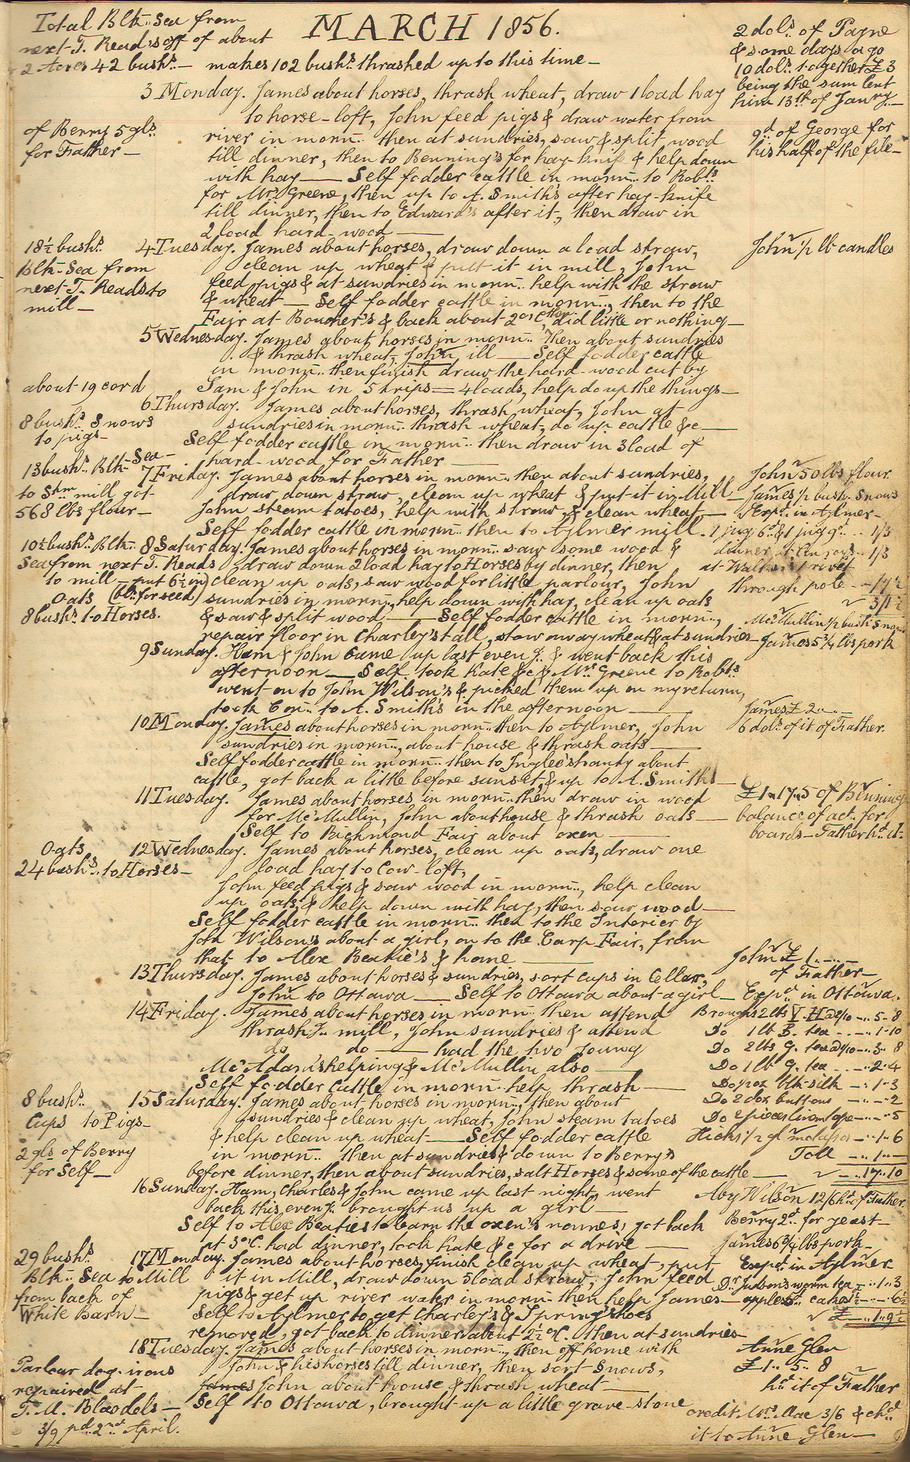 Total Blk.. Sea from
next T. Read's off of about
2 Acres 42 bush.s —
MARCH 1856.
makes 102 bush.s thrashed up to this time —
2 dol.s of Payne
& some days ago
10 dol.s together £3
being the sum lent
him 13th of Jan'ry —
3 Monday. James about horses, thrash wheat, draw 1 load hay
to horse-loft, John feed pigs & draw water from
of Berry 5 gls.
for Father —
river in morn.. then at sundries, saw & split wood
till dinner, then to Benning's for hay-knife & help down
9d of George for
his half of the file —
with hay — Self fodder cattle in morn.. to Rob.ts
for Mrs Greene, then up to A. Smith's after hay-knife
till dinner, then to Edward's after it, then draw in
2 load hard-wood —
18½ bush.s
Blk.. Sea from
next T. Reads to
mill —
4 Tuesday. James about horses, draw down a load straw,
clean up wheat & put it in mill, John
feed pigs & at sundries in morn.. help with the straw
& wheat — Self fodder cattle in morn.., then to the
Fair at Boucher's & back about 2 o'C, did little or nothing —
John 1 lb candles
5 Wednesday. James about horses in morn.. then about sundries
& thrash wheat, John, ill — Self fodder cattle
in morn.. then finish draw the hard-wood cut by
about 19 cord
Sam & John in 5 trips = 4 loads, help do up the things —
6 Thursday. James about horses, thrash wheat, John at
8 bush.s Snows
to pigs —
sundries in morn.. thrash wheat, do up cattle &c —
Self fodder cattle in morn.. then draw in 3 load of
hard-wood for Father —
13 bush.s Blk.. Sea —
to mill got
568 lbs flour —
7 Friday. James about horses in morn.. then about sundries,
draw down straw, clean up wheat & put it in Mill —
John steam tatoes, help with straw & clean wheat —
Self fodder cattle in morn.. then to Aylmer mill.
John 50 lbs flour
James 1 bush. Snows
Exp.s in Aylmer —
1 jug 6d & 1 jug 9d .. 1/3
dinner 1/3
at rivet
through pole
10½ bush.s Blk..
Sea from next T. Reads
to mill — put 6½ in
Oats (bl. for seed)
8 bush.s to Horses.
8 Saturday. James about horses in morn.. saw some wood &
draw down 2 load hay to Horses by dinner, then
clean up oats, saw wood for little parlour, John
sundries in morn.. help down with hay, clean up oats
& saw & split wood — Self fodder cattle in morn..,
repair floor in Charley's stall, stow away wheat & at sundries —
McMullin 1 bush. Snows
James 5¾ lbs pork
9 Sunday. Ham & John came up last even.g & went back this
afternoon — Self took Kate &c & Mrs Greene to Rob.ts
went on to John Wilson's & picked them up on my return,
took Con.. to A. Smith's in the afternoon —
10 Monday. James about horses in morn.. then to Aylmer, John
sundries in morn.., about house & thrash oats —
Self fodder cattle in morn.. then to Inglee's shanty about
cattle, got back a little before sunset, & up to A. Smith's —
James £ 2 .. ..
6 dol.s of it of Father.
11 Tuesday. James about horses in morn.. then draw in wood
for McMullin, John about house & thrash oats —
Self to Richmond Fair about oxen —
£ 1 .. 17 .. 5 of Benning
balance of act. for
boards — Father h.d it.
Oats
24 bush.s to Horses —
12 Wednesday. James about horses, clean up oats, draw one
load hay to Cow-loft,
John feed pigs & saw wood in morn.., help clean
up oats, & help down with hay, then saw wood —
Self fodder cattle in morn.. then to the Interier by
John Wilson's about a girl, on to the Carp Fair, from
that to Alex Beatie's & home —
John £ 1 .. .. ..
of Father —
13 Thursday. James about horses & sundries, sort Cups in Cellar,
John to Ottawa — Self to Ottawa about a girl —
Exp.s in Ottawa.
14 Friday. James about horses in morn.. then attend
thrash.g mill, John sundries & attend
do — do — had the two young
McAdam's helping & McMullin also —
Self fodder cattle in morn.. help thrash —
Brough's 2 lbs Y-H — .. 5 .. 8
Do 1 lb B. tea — .. 1 .. 10
Do 2 lbs G. tea — .. 3 .. 8
Do 1 lb G. tea — .. 2 .. 4
8 bush.s
Cups to Pigs —
2 gls. of Berry
for Self —
15 Saturday. James about horses in morn.., then about
sundries & clean up wheat, John steam tatoes
& help clean up wheat — Self fodder cattle
in morn.. then at sundries & down to Berry's
before dinner, then about sundries, salt Horses & some of the cattle —
Do 1 oz blk silk — .. 1 .. 3
Do 2 doz buttons — .. — .. 2
Do 2 pieces linen tape — .. — .. 5
Hicks ½ gl molasses — .. 1 .. 6
Toll — .. 1 .. —
— .. 17 .. 10
16 Sunday. Ham, Charles & John came up last night, went
back this even.g brought us up a girl —
Self to Alex Beaties to learn the oxen's names, got back
at 3 o'C. had dinner, took Kate &c for a drive —
Aby Wilson 12/6 h.d of Father
Berry 2d. for yeast —
James 6¾ lbs pork —
29 bush.s
Blk.. Sea to Mill
from back of
White Barn —
17 Monday. James about horses, finish clean up wheat, put
it in Mill, draw down 5 load straw, John feed
pigs & get up river water in morn.. then help James —
Self to Aylmer to get Charley's & Spring's shoes
removed, got back to dinner about 2½ o'C. then at sundries —
Exp.s in Aylmer
Dr Judson's worm tea — .. 1 .. 3
apples cakes — .. — .. 6½
£ — .. 1 .. 9½
18 Tuesday. James about horses in morn.., then off home with
John & his horses till dinner, then sort Snows,
John about house & thrash wheat —
Self to Ottawa, brought up a little grave-stone
Parlour dog-irons
repaired at
T. M. Blasdels —
3/9 pd. 2nd April.
Anne Glen
£ 1 .. 5 .. 8
h.d it of Father
credit Mrs Mac 3/6 & ch.d
it to Anne Glen —